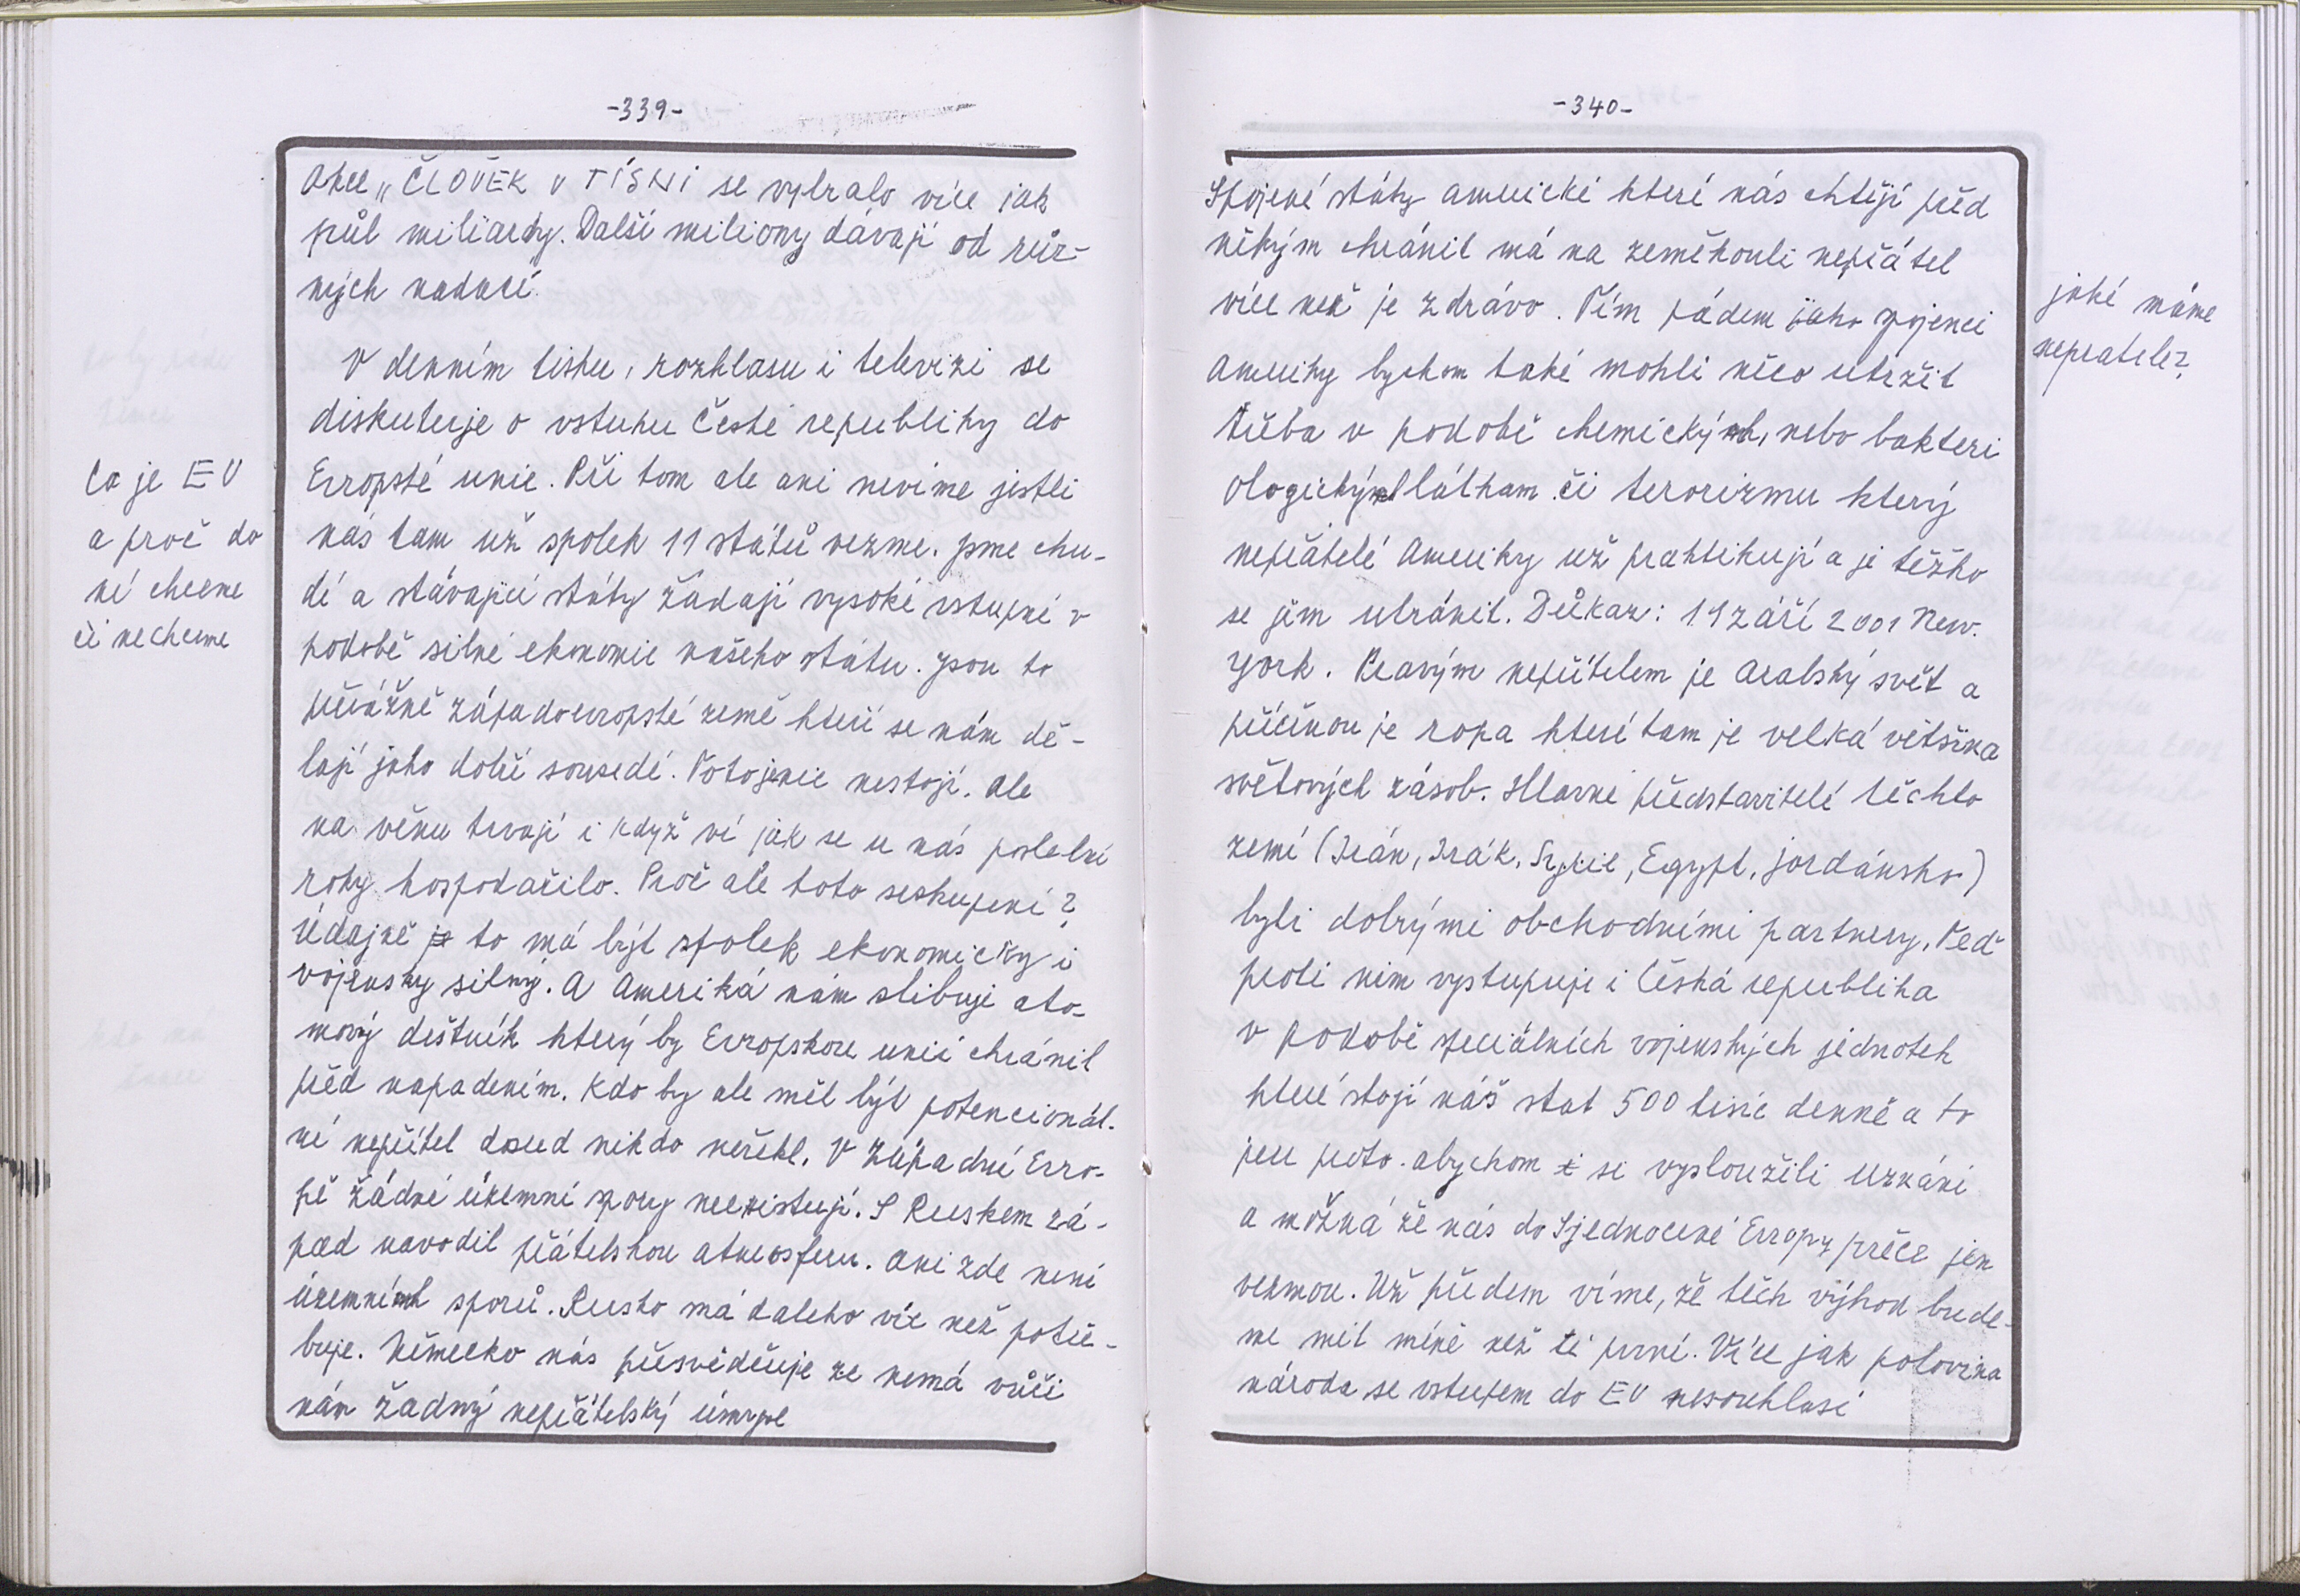 -339-
Akce „ČLOVĚK V TÍSNI se vybralo více jak
půl miliardy. Další miliony dávají od růz-
ných nadací.
V denním tisku, rozhlasu i televizi se
diskutuje o vstupu České republiky do
Evropské unie. Při tom ale ani nevíme jestli
nás tam už spolek 11 států vezme. jsme chu-
dí a stávající státy žádají vysoké vstupné v
podobě silné ekonomie našeho státu. jsou to
převážně západoevropské země kteří se nám dě-
lají jako dobří sousedé. Potojenie nestojí. Ale
na věnu trvají i když ví jak se u nás posledné
roky hospodařilo. Proč ale toto seskupení?
Údajně je to má být spolek ekonomicky i
vojensky silný. A Amerika nám slibuje ato-
mový deštník který by Evropskou unii chránil
před napadením. Kdo by ale měl být potencionál-
ní nepřítel dosud nikdo neřekl. V Západní Evro-
pě žádné územní spory neexistují. S Ruskem zá-
pad navodil přátelskou atmosferu. Ani zde není
územních sporů. Rusko má daleko víc než potře-
buje. Německo nás přesvědčuje že nemá vůči
nám žadný nepřátelský úmysl
Co je EU
a proč do
ní chceme
či nechceme
-340-
Spojené státy americké které nás chtějí před
někým chránit má na zeměkouli nepřátel
více než je zdrávo. Tím pádem jako spojenci
Ameriky bychom také mohli něco utržit
třeba v podobě chemickým, nebo bakteri
ologickým látkam či terorizmu který
nepřátelé Ameriky už praktikují a je těžko
se jim ubránit. Důkaz: 11 září 2001 New.
York. Pravým nepřítelem je arabský svět a
příčinou je ropa které tam je velká většina
světových zásob. Hlavní představitelé těchto
zemí (Irán, Irák, Syrie, Egypt, jordánsko)
byli dobrými obchodními partnery. Teď
proti nim vystupuje i Česká republika
v podobě speciálních vojenských jednotek
které stojí náš stat 500 tisíc denně a to
jen proto. abychom si vysloužili uznání
a možná že nás do Sjednocené Evropy přéce jen
vezmou. Už předem víme, že těch výhod bude-
me mít méně než ti první. Více jak polovina
národa se vstupem do EU nesouhlasí
jaké máme
nepratele?